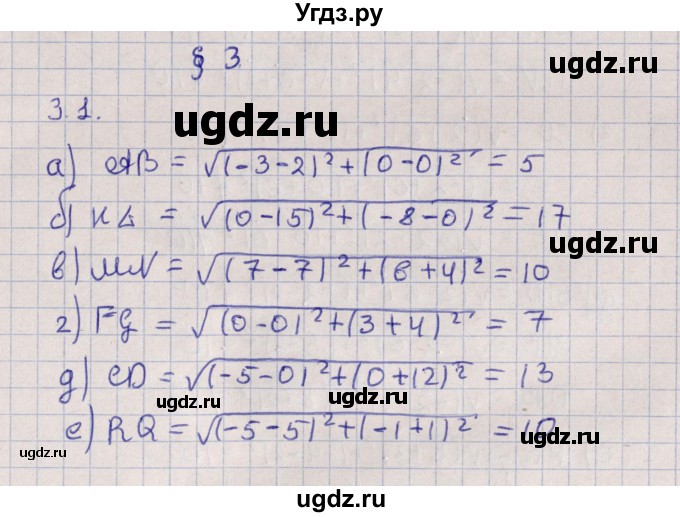 Угдз.ру
§ 3
ugdz.ru
3.1.
ugdz.ru
а) AB = √(-3-2)²+(0-0)² = 5
б) KL = √(0-15)²+(-8-0)² = 17
в) MN = √(7-7)²+(6+4)² = 10
ugdz.ru
ugdz.ru
г) FG = √(0-0)²+(3+4)² = 7
д) CD = √(-5-0)²+(0+12)² = 13
ugdz.ru
ugdz.ru
е) RQ = √(-5-5)²+(-1+1)² = 10
ugdz.ru
ugdz.ru
ugdz.ru